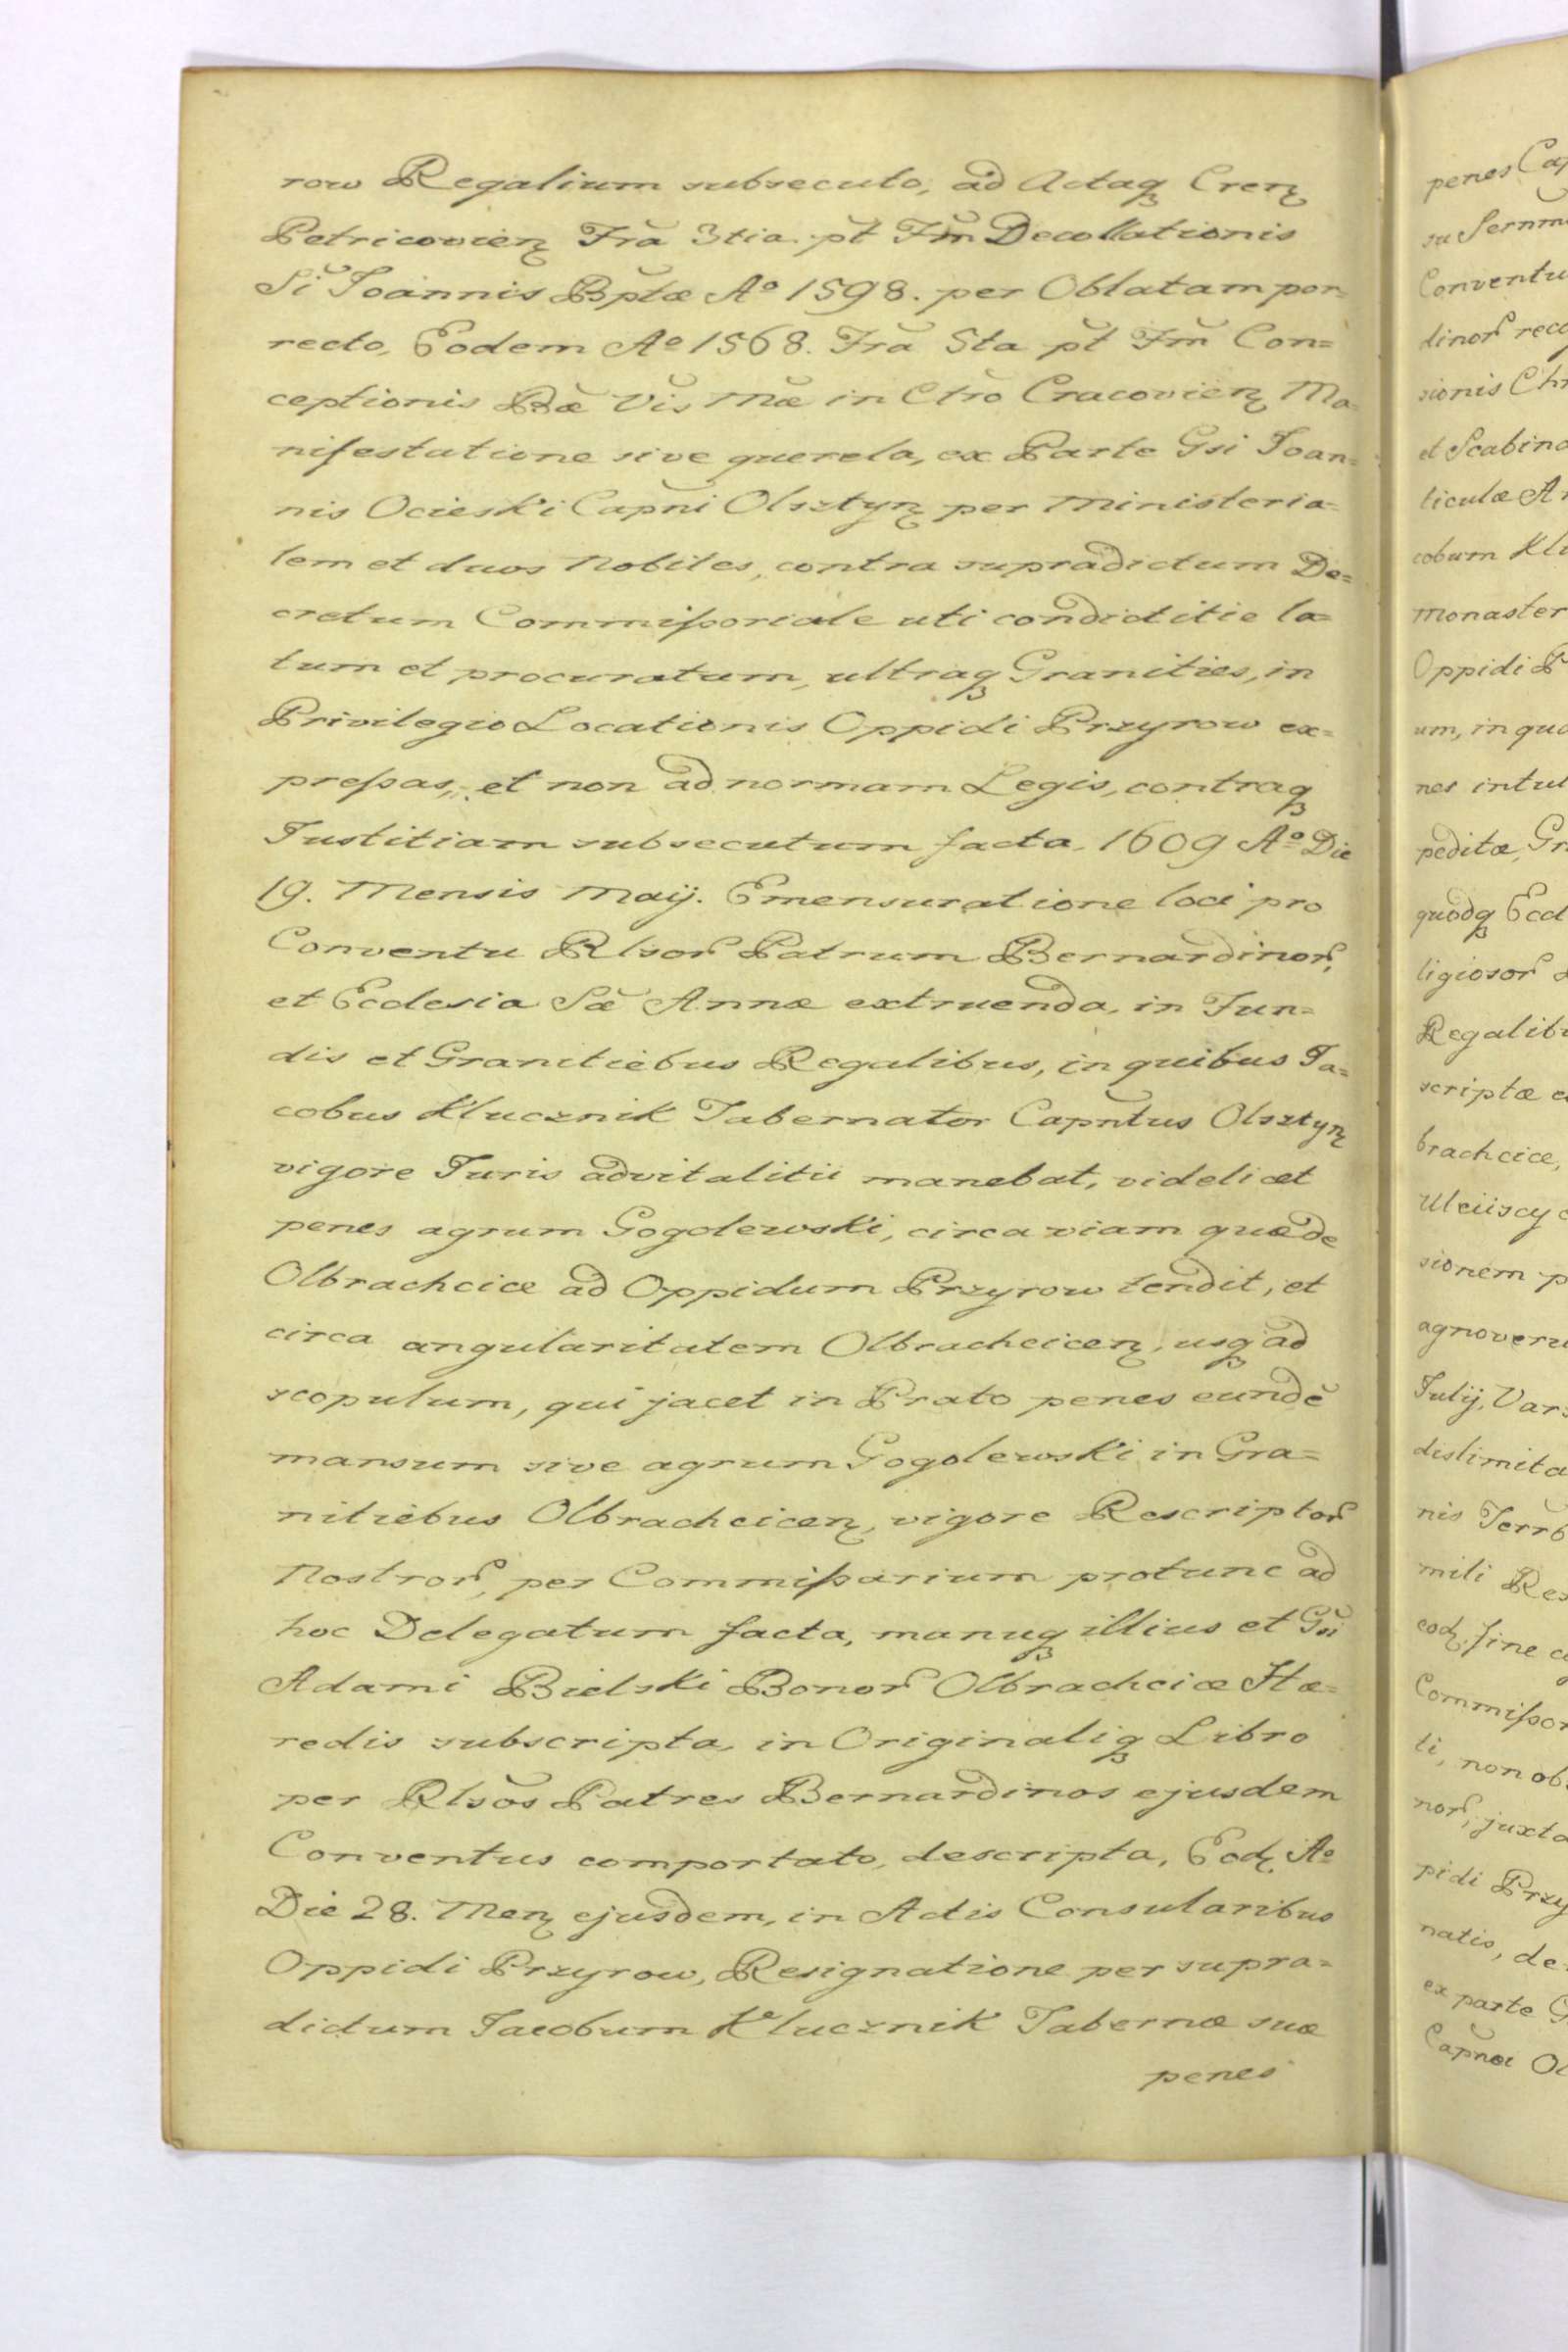 row Regalium subsecuto, ad Actaq́ꝫ Cren̄
Petricovien̄ Fr̃a 3tia p̃t Fm̃ Decollationis
Sĩ Joannis Bp̃tæ Aº 1598. per Oblatam por=
recto, Eodem Aº 1568. Fr̃a 5ta p̃t Fm̃ Con=
ceptionis Bæ̃ Vĩs Mæ̃ in Ctr̃o Cracovien̄ Ma=
nifestatione sive querela, ex Parte Gsi Joan=
nis Ocieski Capñi Olsztyn̄ per Ministeria=
lem et duos Nobiles, contra supradictum De=
cretum Commissoriale uti condictitie la=
tum et procuratum, ultraqꝫ Granities, in
Privilegio Locationis Oppidi Przyrow ex=
pressas, et non ad normam Legis, contraqꝫ
Justitiam subsecutum facta, 1609 Aº Die
19. Mensis Maij. Emensuratione loci pro
Conventu Rlsor̃ Patrum Bernardinor̃,
et Ecclesia Sæ̃ Annæ extruenda, in Fun=
dis et Granitiebus Regalibus, in quibus Ja=
cobus Klucznik Tabernator Capñtus Olsztyn̄
vigore Juris advitalitii manebat, videlicet
penes agrum Gogolewski, circa viam quæ de
Olbrachcice ad Oppidum Przyrow tendit, et
circa angularitatem Olbrachcicen̄, usqꝫ ad
scopulum, qui jacet in Prato penes eundẽ
mansum sive agrum Gogolewski in Gra=
nitiebus Olbrachcicen̄, vigore Rescriptor̃
Nostror̃, per Commissarium protunc ad
hoc Delegatum facta, manuqꝫ illius et Gs̃i
Adami Bielski Bonor̃ Olbrachcice Hæ=
redis subscripta, in Originaliqꝫ Libro
per Rlsõs Patres Bernardinos ejusdem
Conventus comportato, descripta, Eod̃. Aº
Die 28. Men̄ ejusdem, in Actis Consularibus
Oppidi Przyrow, Resignatione per supra=
dictum Jacobum Klucznik Tabernæ suæ
penes
penes Cap
su Sernm
Conventu
dinor̃ reco
sionis Chr
et Scabino
ticulæ A
cobum Klu
Monaster
Oppidi P
um, in quo
nes intul
peditæ, Gr
quodqꝫ Eccl
ligiosor̃
Regalib
scriptæ e
brachcice,
sionem p
agnoveru
Julij, Var
dislimita
nis Terr
mili Res
eod̃, sine
Commissor
ti, non ob
nor̃, juxta
pidi Przy
natis, de
ex parte G
Capñei Ol